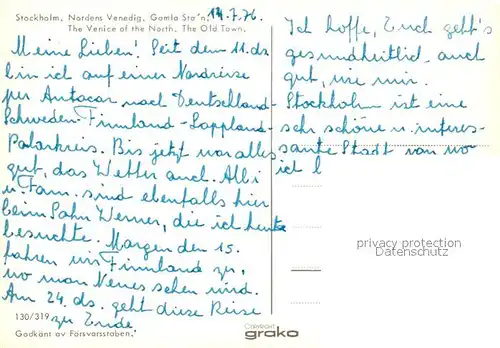 Stockholm, Nordens Venedig. Gamla Sta'n.
The Venice of the North. The Old Town.
14.7.76
Meine Lieben! Seit dem 11. ds
bin ich auf einer Nordreise
per Autocar nach Deutschland-
Schweden-Finnland-Lappland-
Polarkreis. Bis jetzt war alles
gut, das Wetter auch. Albi
u. Fam. sind ebenfalls hier
beim Sohn Werner, die ich heute
besuchte. Morgen den 15.
fahren wir Finnland zu,
wo man Neues sehen wird.
Am 24. ds. geht diese Reise
zu Ende.
Ich hoffe, Euch geht's
gesundheitlich auch
gut, wie mir.
Stockholm ist eine
sehr schöne u. interes-
sante Stadt von wo
ich
privacy protection
Datenschutz
130/319
Godkänt av Försvarsstaben.
Copyright
grako